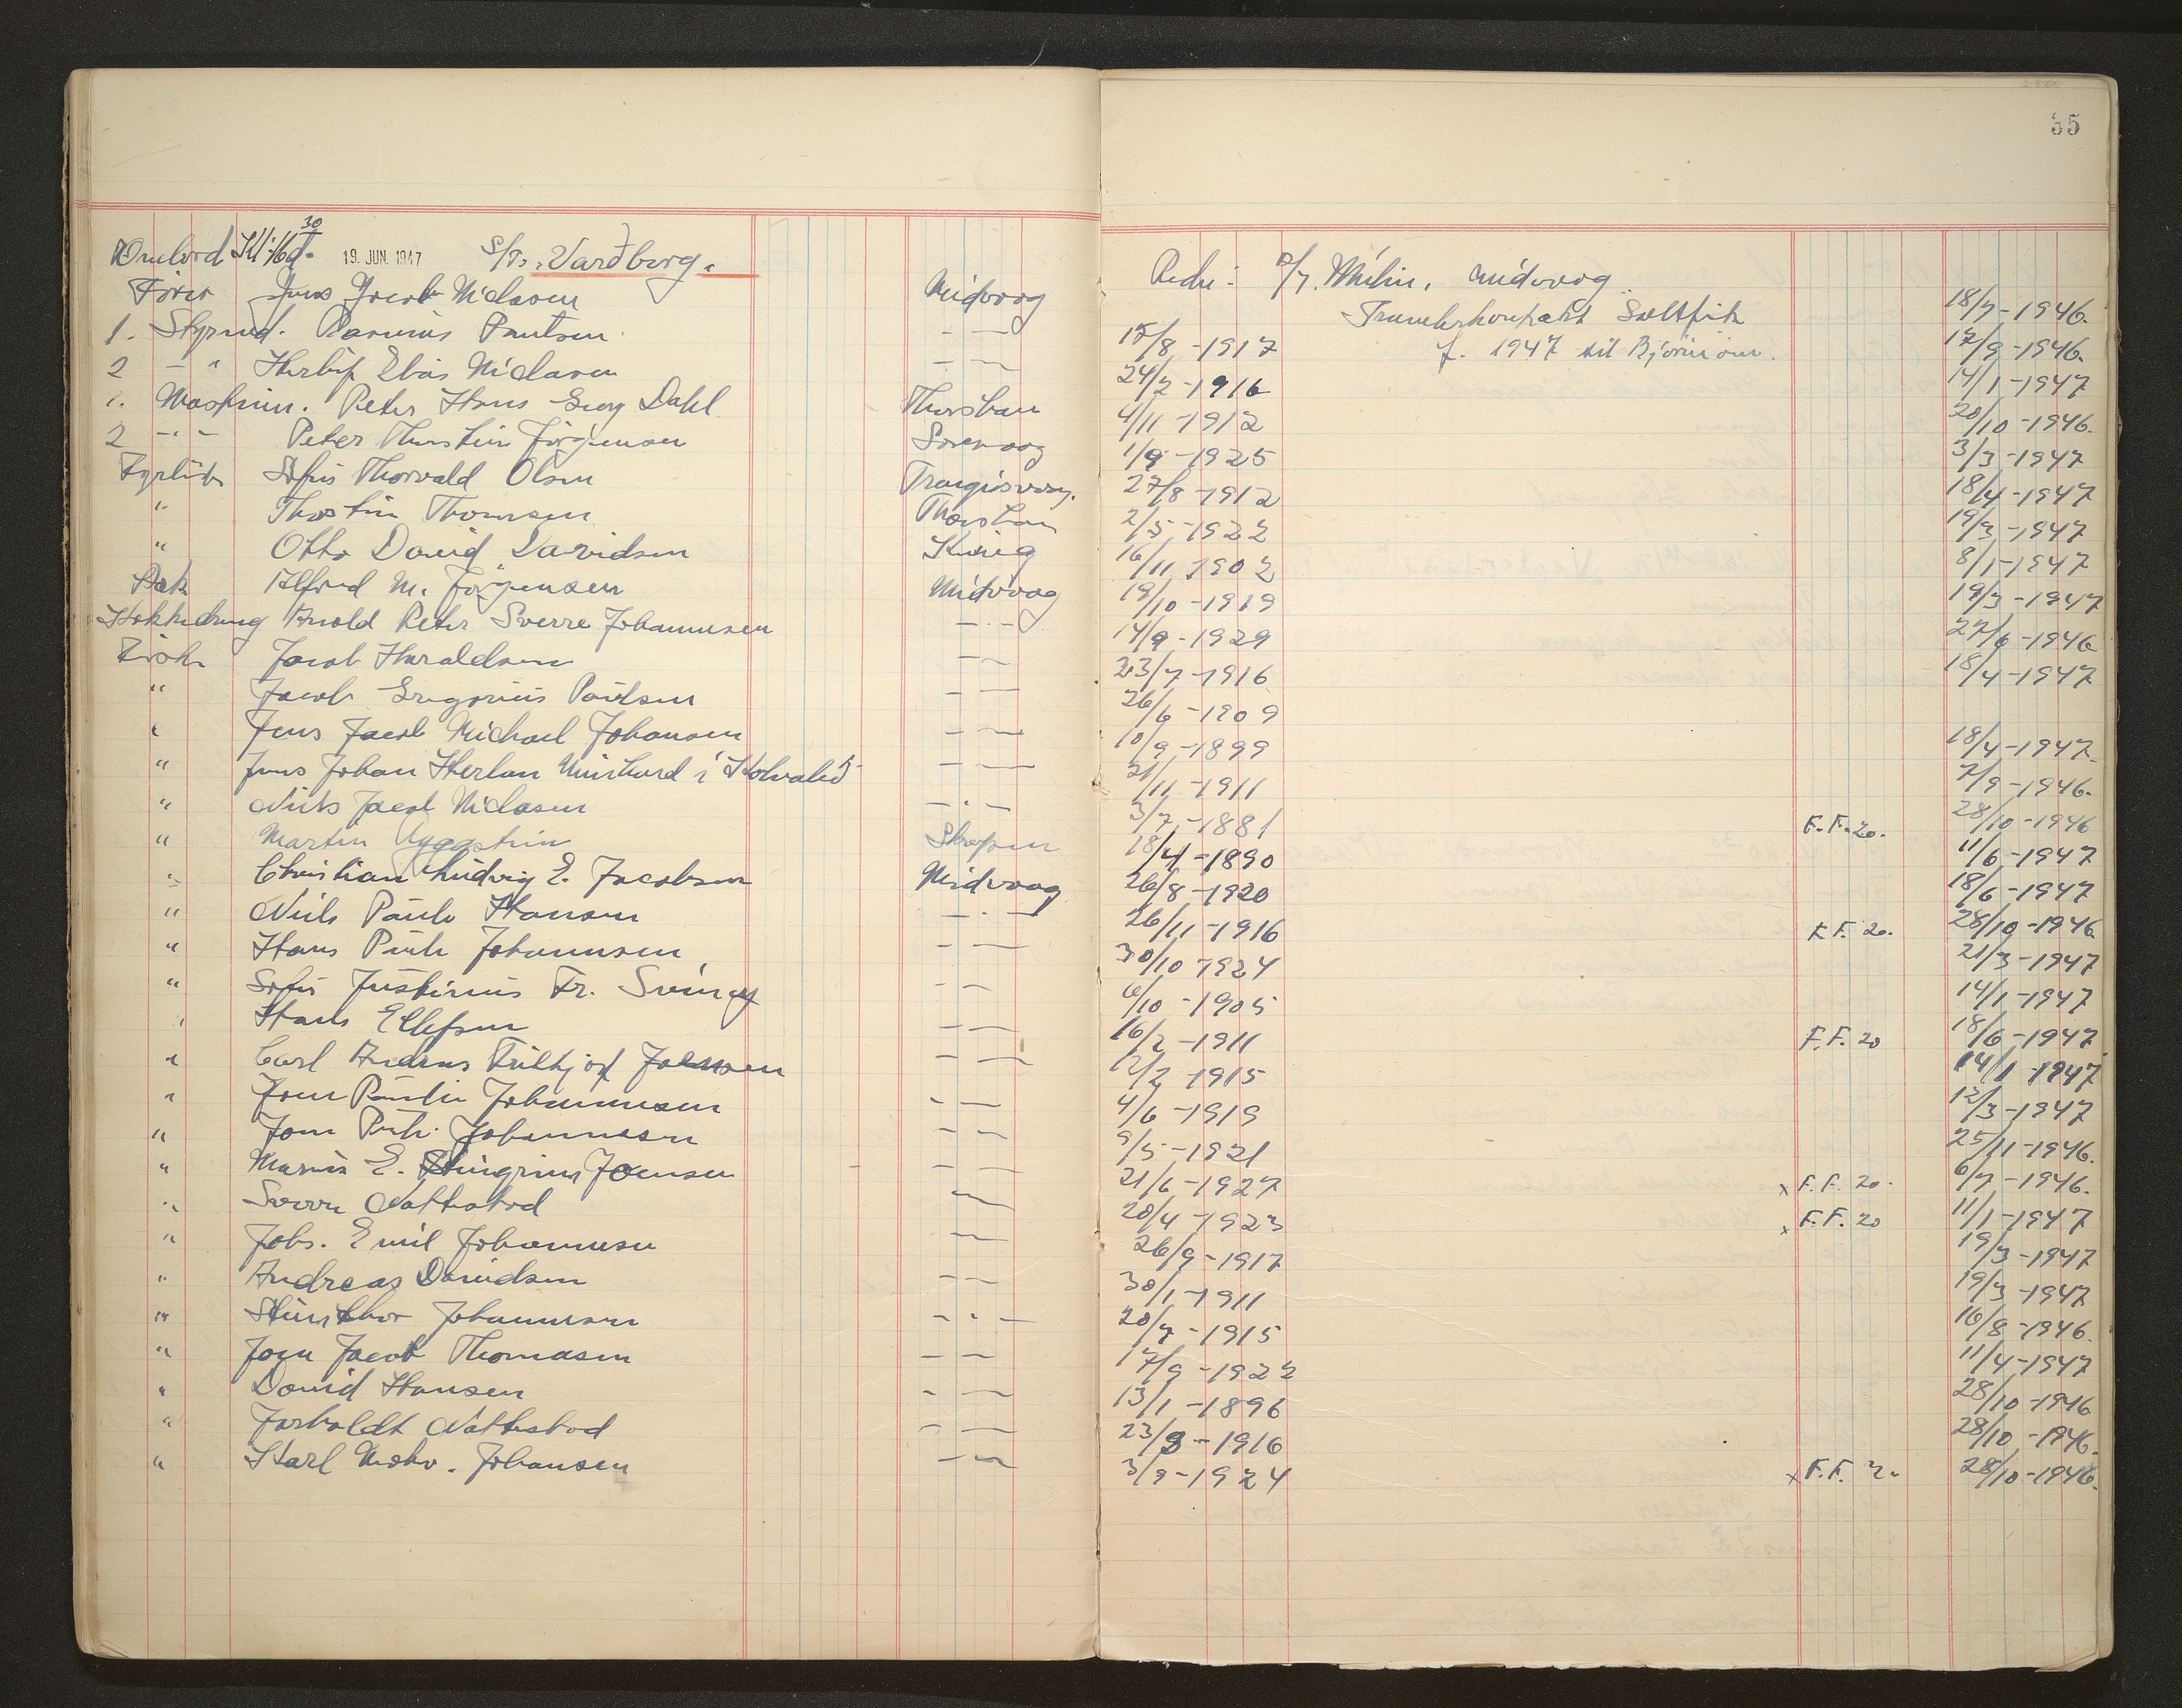 35
Ombord Kl. 16 30 19. JUN. 1947 S/Tr. "Vardberg"
Rederi: A/S. Midvaag
Fører Jens Jacob Niclasen Midvaag 18/7-1946.
Trawlerkontrakt Saltfisk
1. Styrmd. Rasmus Poulsen - — 15/8-1917 12/9-1946.
f. 1947 til Bjørnøen.
2 - " Herluf Elias Niclasen - — 24/2-1916 14/1-1947
1. Maskinm. Peter Hans Georg Dahl Thorshavn 4/11-1912 20/10-1946.
2 - " - Peter Thorstein Jörgensen Sörvaag 1/9-1925 3/3-1947
Fyrböter Sofus Thorvald Olsen Trangisvaag. 27/8-1912 18/4-1947
" Thorstein Thomsen Thorshavn 2/5-1922 19/3-1947
" Otto David Davidsen Kvivig 16/11-1902 8/1-1947
Kok Alfred M. Jörgensen Midvaag 19/10-1919 19/3-1947
Kokkedreng Arnold Peter Sverre Johannesen - — 14/9-1929 27/6-1946
Fisker Jacob Haraldsen - — 23/7-1916 18/4-1947
" Jacob Gregorius Poulsen - — 26/6-1909
" Jens Jacob Michael Johansen - — 10/9-1899 18/4-1947.
" Jens Johan Herlan í - — 21/11-1911 7/9-1946.
" Niels Jacob Niclasen - - — 3/7-1881 F.F. 20. 28/10-1946
" Martin Skopun 18/4-1890 11/6-1947
" Christian Ludvig E. Jacobsen Midvaag 26/8-1920 18/6-1947
" Niels Paule Hansen - - — 26/11-1916 F.F. 20. 28/10-1946
" Hans Peter Johannesen - — 30/10-1924 21/3-1947
" Sofus Justinus Fr. - — 6/10-1905 14/1-1947
" Hans Ellefsen - — 16/2-1911 F.F. 20 18/6-1947
" Carl Andreas Frithjof Joensen - — 12/2-1915 14/1-1947
" Joen Paulin Johannesen - — 4/6-1919 12/3-1947
" Joen Peter Johannesen - — 9/5-1921 25/11-1946.
" Marius E. Joensen - — 21/6-1927 x F.F. 20. 6/7-1946.
" Sverre Nattestad — 20/4-1923 x F.F. 20 11/1-1947
" Johs. Emil Johannesen — 26/9-1917 19/3-1947
" Andreas Davidsen - — 30/1-1911 19/3-1947
" Steinthor Johannesen - - — 20/7-1915 16/8-1946.
" Joen Jacob Thomasen - — 17/9-1922 11/4-1947
" David Hansen - — 13/1-1896 28/10-1946
" Nattestad - — 23/9-1916 28/10-1946.
" Karl Johansen - — 3/9-1924 x F.F. 28/10-1946.